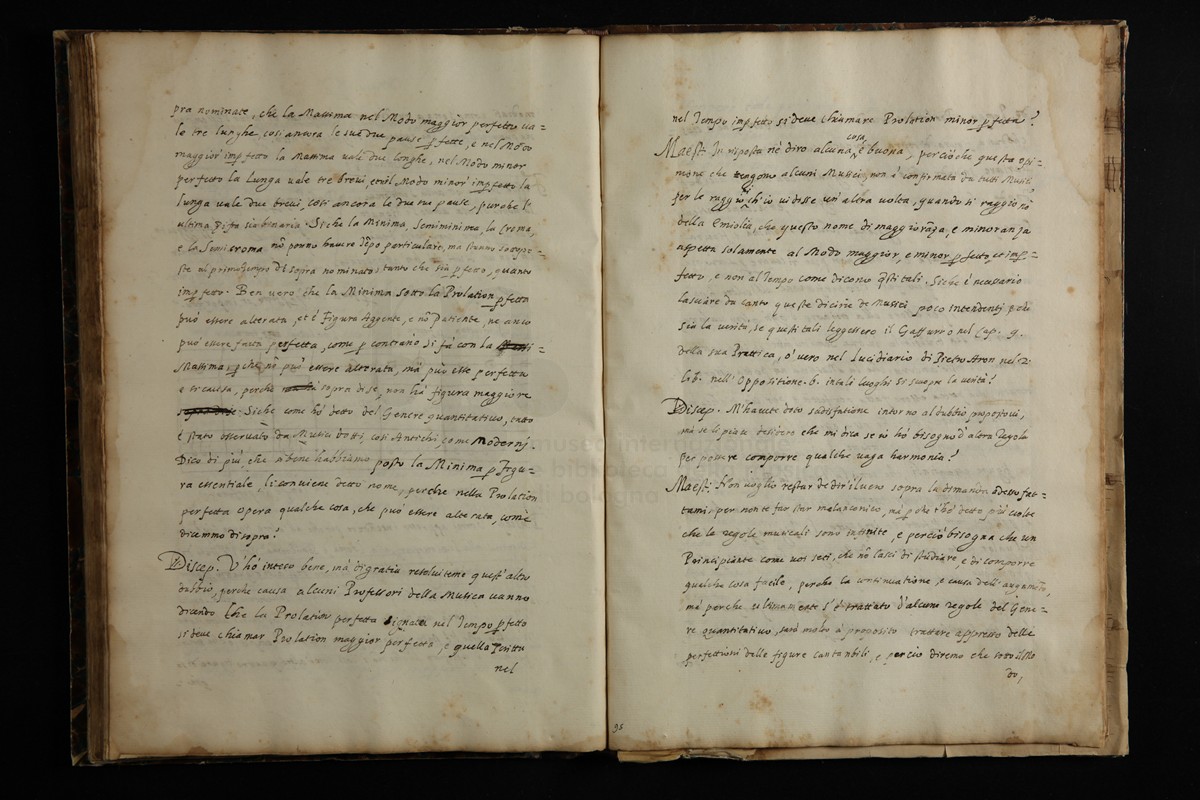 pra nominate, che la Massima nel Modo maggior perfetto va=
le tre lunghe cosi ancora le sue due pause pfette, e nel Modo
maggior impfetto la Massima vale due longhe, nel Modo minor
perfetto la Lunga vale tre brevi, et il Modo minor impfetto la
lunga vale due brevi, cosi ancora le due sue pause, purche l'
ultima sia binaria. Siche la Minima, Seminimina, la Croma,
e la Semicroma nõ ponno havere particulare, ma stanno sottopo=
ste al primo di sopra nominato, tanto che sia pfetto, quanto
impfetto. Ben vero, che la Minima sotto la Prolation pfetta
può essere alterata, et è Figura Aggente, e nõ Patiente, ne anco
può essere fatta perfetta, come p contrario si fà con la
Massima, p che nõ può essere alterata, mà può esse perfetta
e causa, perche sopra di se, non ha figura maggiore
Siche come hò detto del Genere quantitativo, tutto
è stato osservato da Musici dotti, cosi Antichi, come Moderni.
Dico di più, che habbiamo posto la Minima p Figu=
ra essentiale, li conviene detto nome, perche nella Prolation
perfetta opera qualche cosa, che può essere alterata, come
dicemmo di sopra?
Discep. V'hò inteso bene, mà di gratia resolvitemi quest'altro
dubbio, perche causa alcuni Professori della Musica vanno
dicendo che la Prolation perfetta signata nel Tempo pfetto
si deve chiamar Prolation maggior perfetta, e quella scritta
nel
nel Tempo impfetto si deve chiamare Prolation minor pfetta?
Maest. In risposta nè diro alcuna cosa è buona, perciòche questa opi=
nione che tengono alcuni Musici, non è confirmata da tutti Musici
per le raggioni ch'io vi disse un'altra volta, quando ti raggionò
della Emiolia, che questo nome di maggioranza, e minoranza
aspetta solamente al Modo maggior, e minor pfetto, et imp=
fetto, e non al Tempo come dicono qsti tali. Siche è necessario
lasciare da canto queste dicerie de Musici poco intendenti p che
sia la verità, se questi tali leggessero il Gaffurro nel Cap. 9.
della sua Prattica, ò vero nel Lucidario di Pietro Aron nel 2.
lib. nell'Oppositione 6. in tali luoghi si scuopre la verità?
Discep. M'havete dato sadisfatione intorno al dubbio propostovi,
mà se li piace desidero che mi dica se io hò bisogno d'altra regola
per potere comporre qualche vaga harmonia?
Maest. Non voglio restar de dirvi vero sopra la dimanda adetto fat=
tami, per non te far star malanconico, mà p che t'hò detto più volte
che le regole musicali sono infinite, e perciò bisogna che un
Principiante come voi seti, che nõ lasci di studiare, e di comporre
qualche cosa facile, perche la continuatione è causa dell'augumento,
mà perche ultimamente s'è trattato d'alcune regole del Gene=
re quantitativo, sarà molto à proposito trattare appresso delle
perfettioni delle figure cantabili, e perciò diremo che sotto il Mo
do,
95